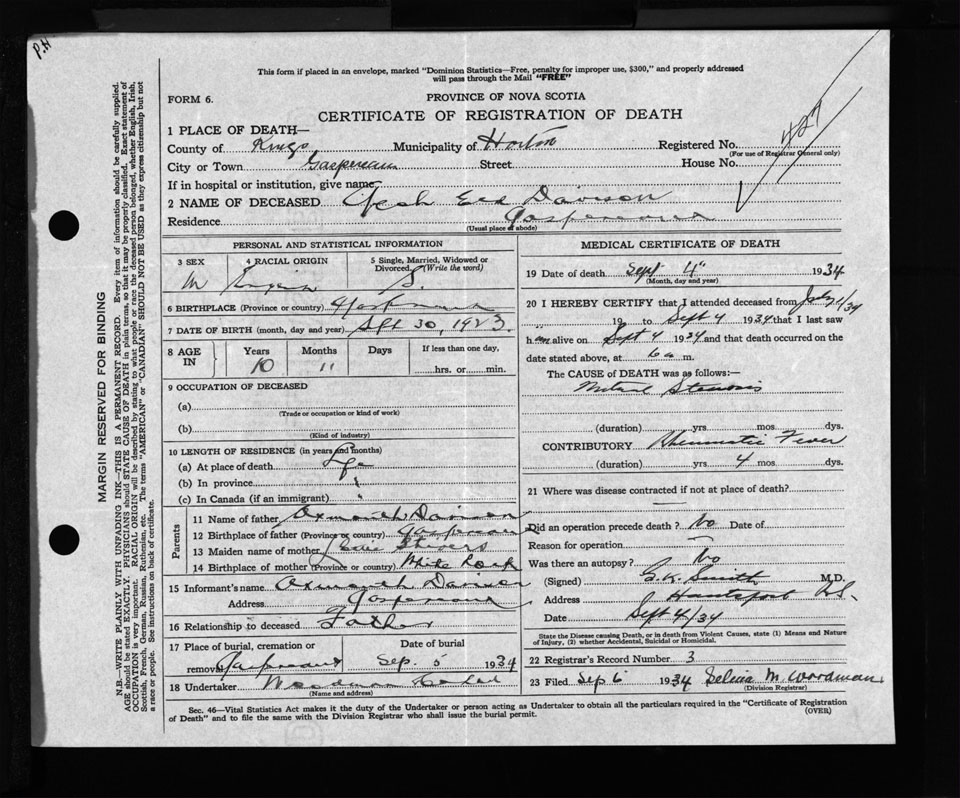 P.H
This form if placed in an envelope, marked "Dominion Statistics—Free, penalty for improper use, $300," and properly addressed
will pass through the Mail "FREE"
FORM 6.
PROVINCE OF NOVA SCOTIA
CERTIFICATE OF REGISTRATION OF DEATH
427
1 PLACE OF DEATH—
County of Kings Municipality of Horton Registered No.
(For use of Registrar General only)
City or Town Gaspereau Street House No.
If in hospital or institution, give name
2 NAME OF DECEASED Davison
Residence Gaspereau
(Usual place of abode)
PERSONAL AND STATISTICAL INFORMATION
3 SEX 4 RACIAL ORIGIN 5 Single, Married, Widowed or Divorced. (Write the word)
M English S.
6 BIRTHPLACE (Province or country) Gaspereau
7 DATE OF BIRTH (month, day and year) Sept 30, 1923.
8 AGE IN Years Months Days If less than one day,
10 11 hrs. or min.
9 OCCUPATION OF DECEASED
(a)
(Trade or occupation or kind of work)
(b)
(Kind of industry)
10 LENGTH OF RESIDENCE (in years and months)
(a) At place of death Life
(b) In province "
(c) In Canada (if an immigrant)
Parents
11 Name of father Davison
12 Birthplace of father (Province or country) Gaspereau
13 Maiden name of mother
14 Birthplace of mother (Province or country) White Rock
15 Informant's name Davison
Address Gaspereau
16 Relationship to deceased Father
17 Place of burial, cremation or removal Gaspereau
Date of burial Sep. 5 1934
18 Undertaker Woodman
(Name and address)
MEDICAL CERTIFICATE OF DEATH
19 Date of death Sept 4" 1934
(Month, day and year)
20 I HEREBY CERTIFY that I attended deceased from July 1/34
19 to Sept 4 1934 that I last saw
h im alive on Sept 4 1934 and that death occurred on the
date stated above, at 6 a m.
The CAUSE of DEATH was as follows:—
Mitral Stenosis
(duration) yrs mos dys.
CONTRIBUTORY Rheumatic Fever
(duration) yrs 4 mos dys.
21 Where was disease contracted if not at place of death?
Did an operation precede death? No Date of
Reason for operation —
Was there an autopsy? No
(Signed) Smith M.D.
Address Hantsport N.S.
Date Sept 4/34
State the Disease causing Death, or in death from Violent Causes, state (1) Means and Nature
of Injury, (2) whether Accidental, Suicidal or Homicidal.
22 Registrar's Record Number 3
23 Filed Sep 6 1934 Selina M. Woodman
(Division Registrar)
Sec. 46—Vital Statistics Act makes it the duty of the Undertaker or person acting as Undertaker to obtain all the particulars required in the "Certificate of Registration
of Death" and to file the same with the Division Registrar who shall issue the burial permit.
(OVER)
MARGIN RESERVED FOR BINDING
N.B.—WRITE PLAINLY WITH UNFADING INK—THIS IS A PERMANENT RECORD. Every item of information should be carefully supplied.
AGE should be stated EXACTLY. PHYSICIANS should STATE CAUSE OF DEATH in plain terms, so that it may be properly classified. Exact statement of
OCCUPATION is very important. RACIAL ORIGIN will be described by stating to what people or race the deceased person belonged, whether English, Irish,
Scottish, French, German, Russian, Ruthenian, etc. The terms "AMERICAN" or "CANADIAN" SHOULD NOT BE USED as they express citizenship but not
a race or people. See instructions on back of certificate.